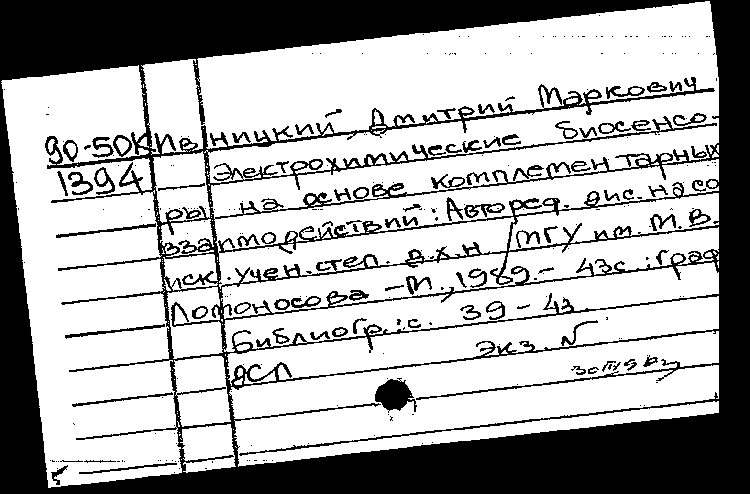 90-50К Ивницкий, Дмитрий Маркович
1394 Электрохимические биосенсо-
ры на основе комплементарных
взаимодействий: Автореф. дис. на со
иск. учен. степ. д.х.н / МГУ им. М.В.
Ломоносова -М., 1989.- 43с.: граф
Библиогр.: с. 39-43.
ДСП Экз. N